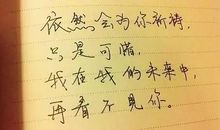 依然会为你祈祷，
只是可惜，
我在我的未来中，
再看不见你。